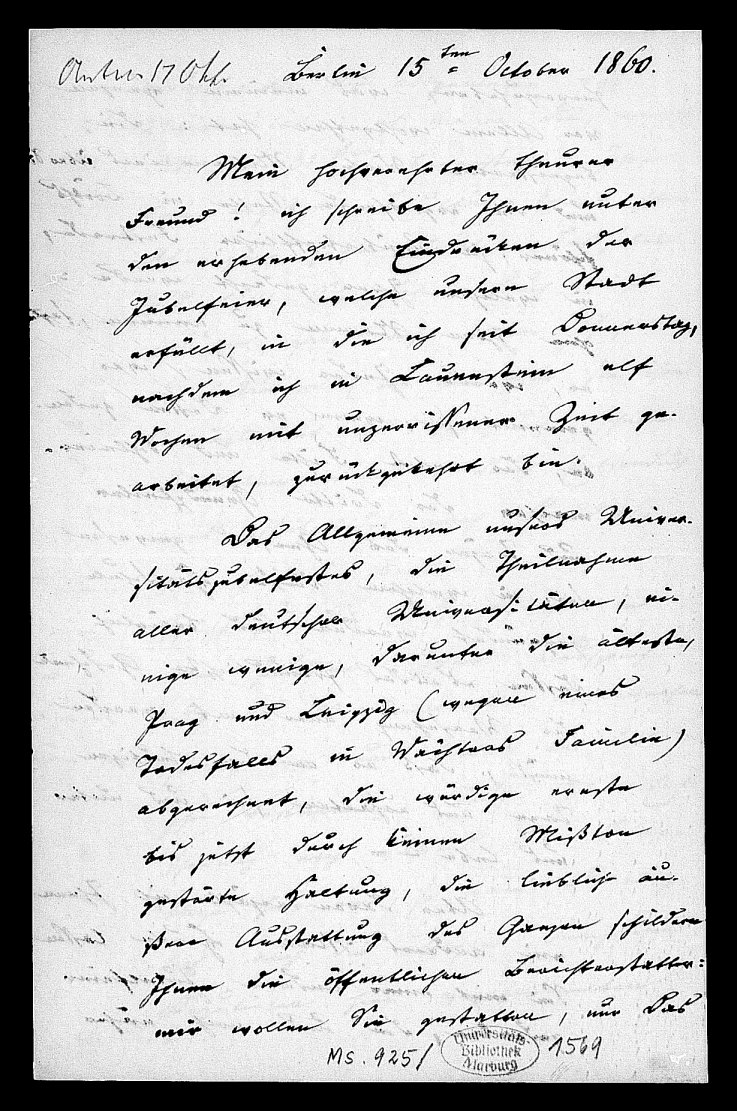 Antw. 17 Okt. Berlin 15ten October 1860.
Mein hochverehrter theurer
Freund! ich schreibe Ihnen unter
den erhebenden Eindrücken der
Jubelfeier, welche unsere Stadt
erfüllt, in die ich seit Donnerstag,
nachdem ich in Lauenstein elf
Wochen mit unzerrissener Zeit ge-
arbeitet, zurückgekehrt bin.
Das Allgemeine unseres Univer-
sitätsjubelfestes, die Theilnahme
aller deutschen Universitäten, ei-
nige wenige, darunter die älteste,
Prag und Leipzig (wegen eines
Todesfalls in Wächters Familie)
abgerechnet, die würdige ernste
bis jetzt durch keinen Mißton
gestörte Haltung, die liebliche äu-
ßere Ausstattung des Ganzen schildern
Ihnen die öffentlichen Berichterstatter:
mir wollen Sie gestatten, nur das
Ms. 925/ Universitäts- 1569
Bibliothek
Marburg